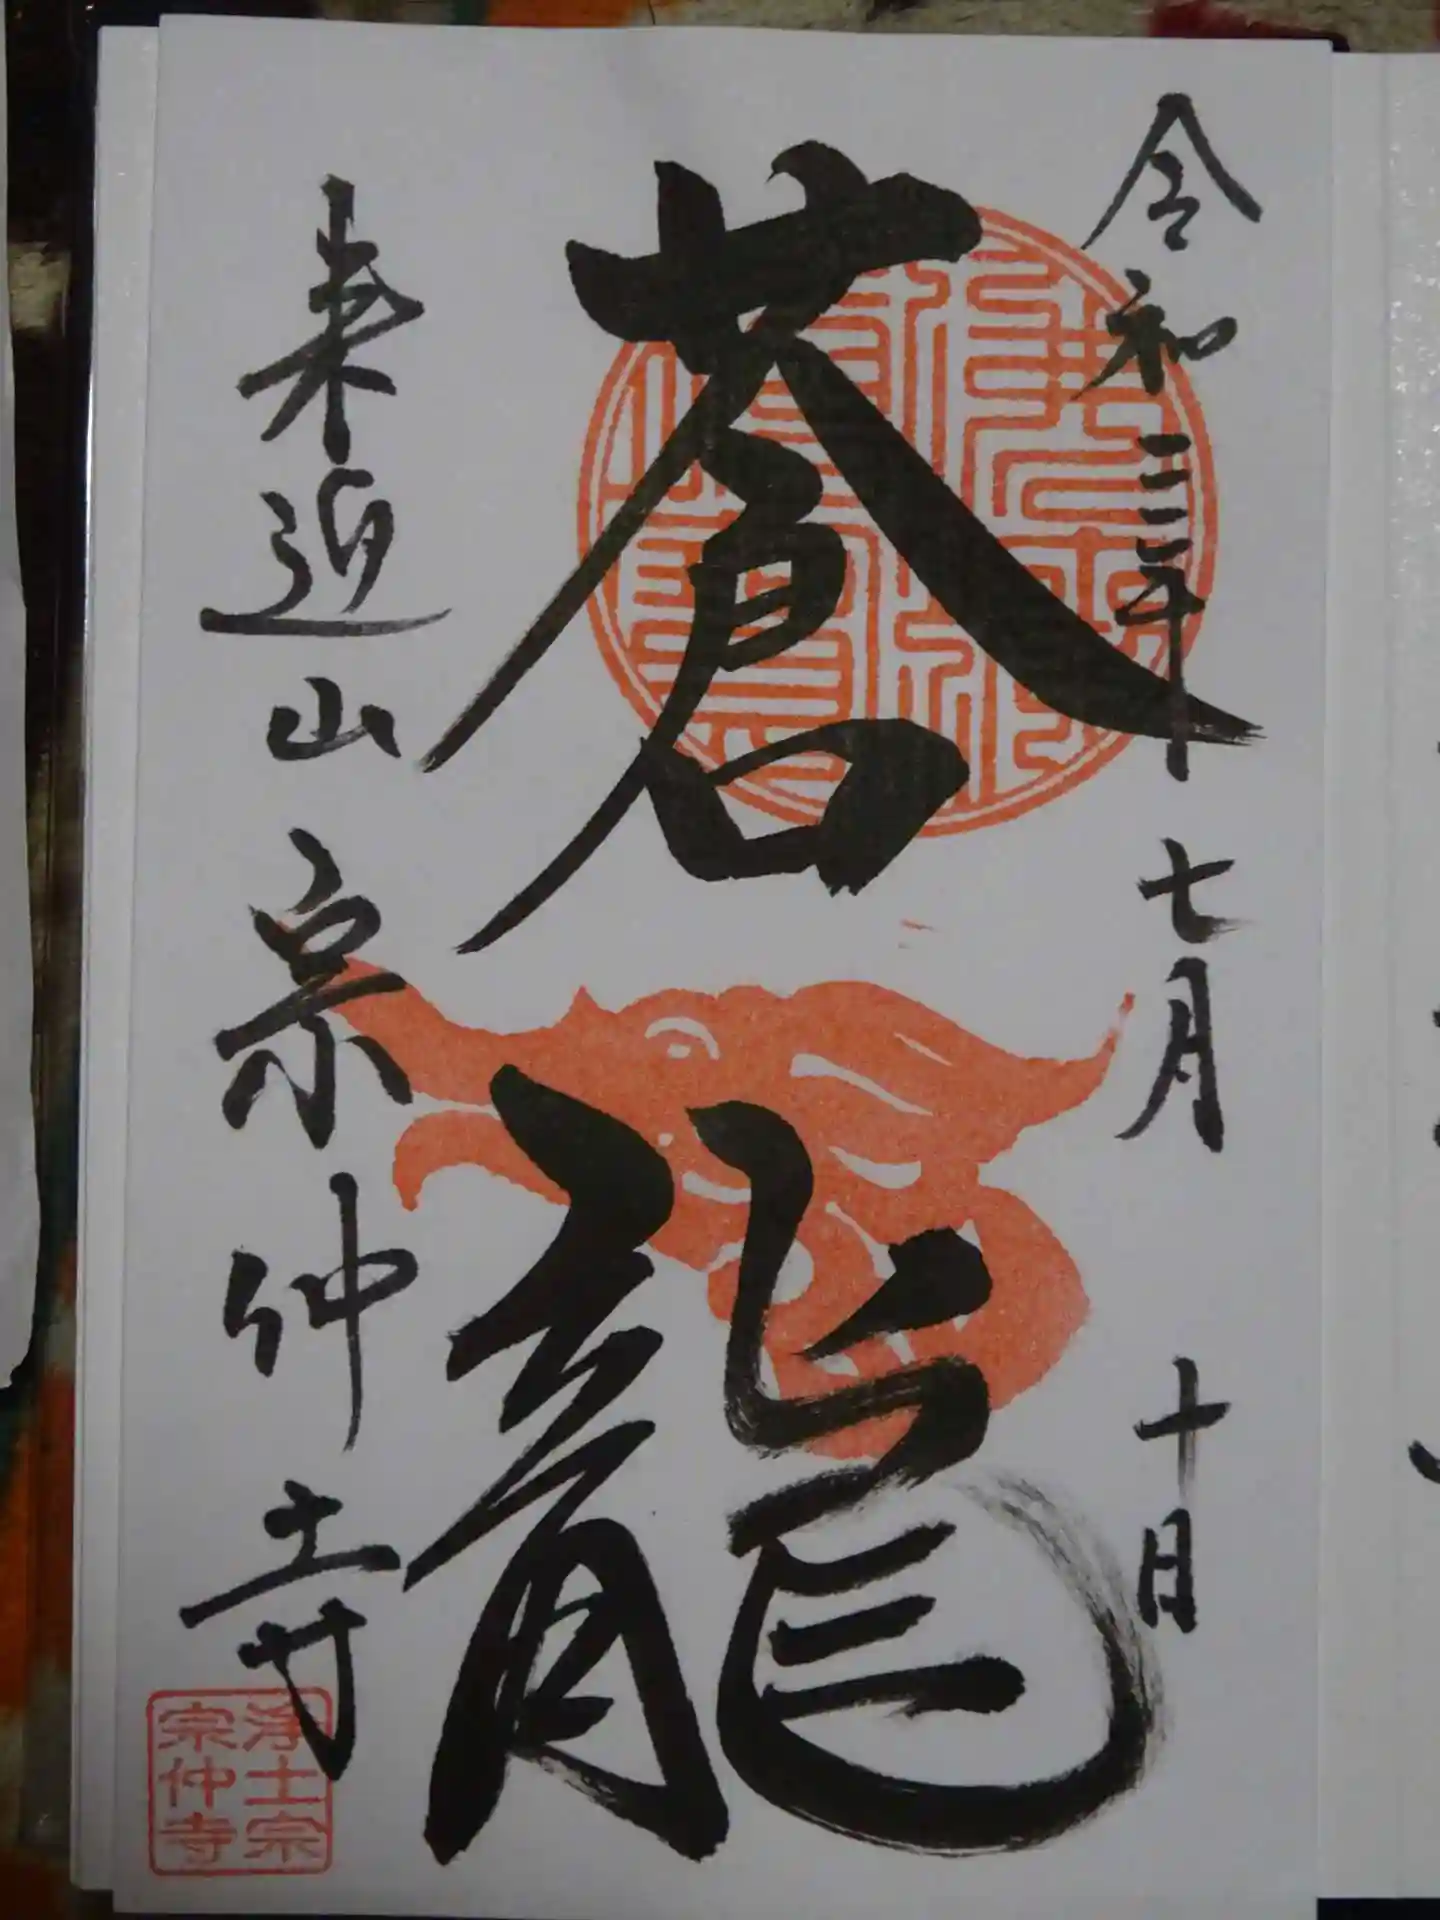 令和三年七月十日
蒼龍
来迎山宗仲寺
浄土宗
宗仲寺